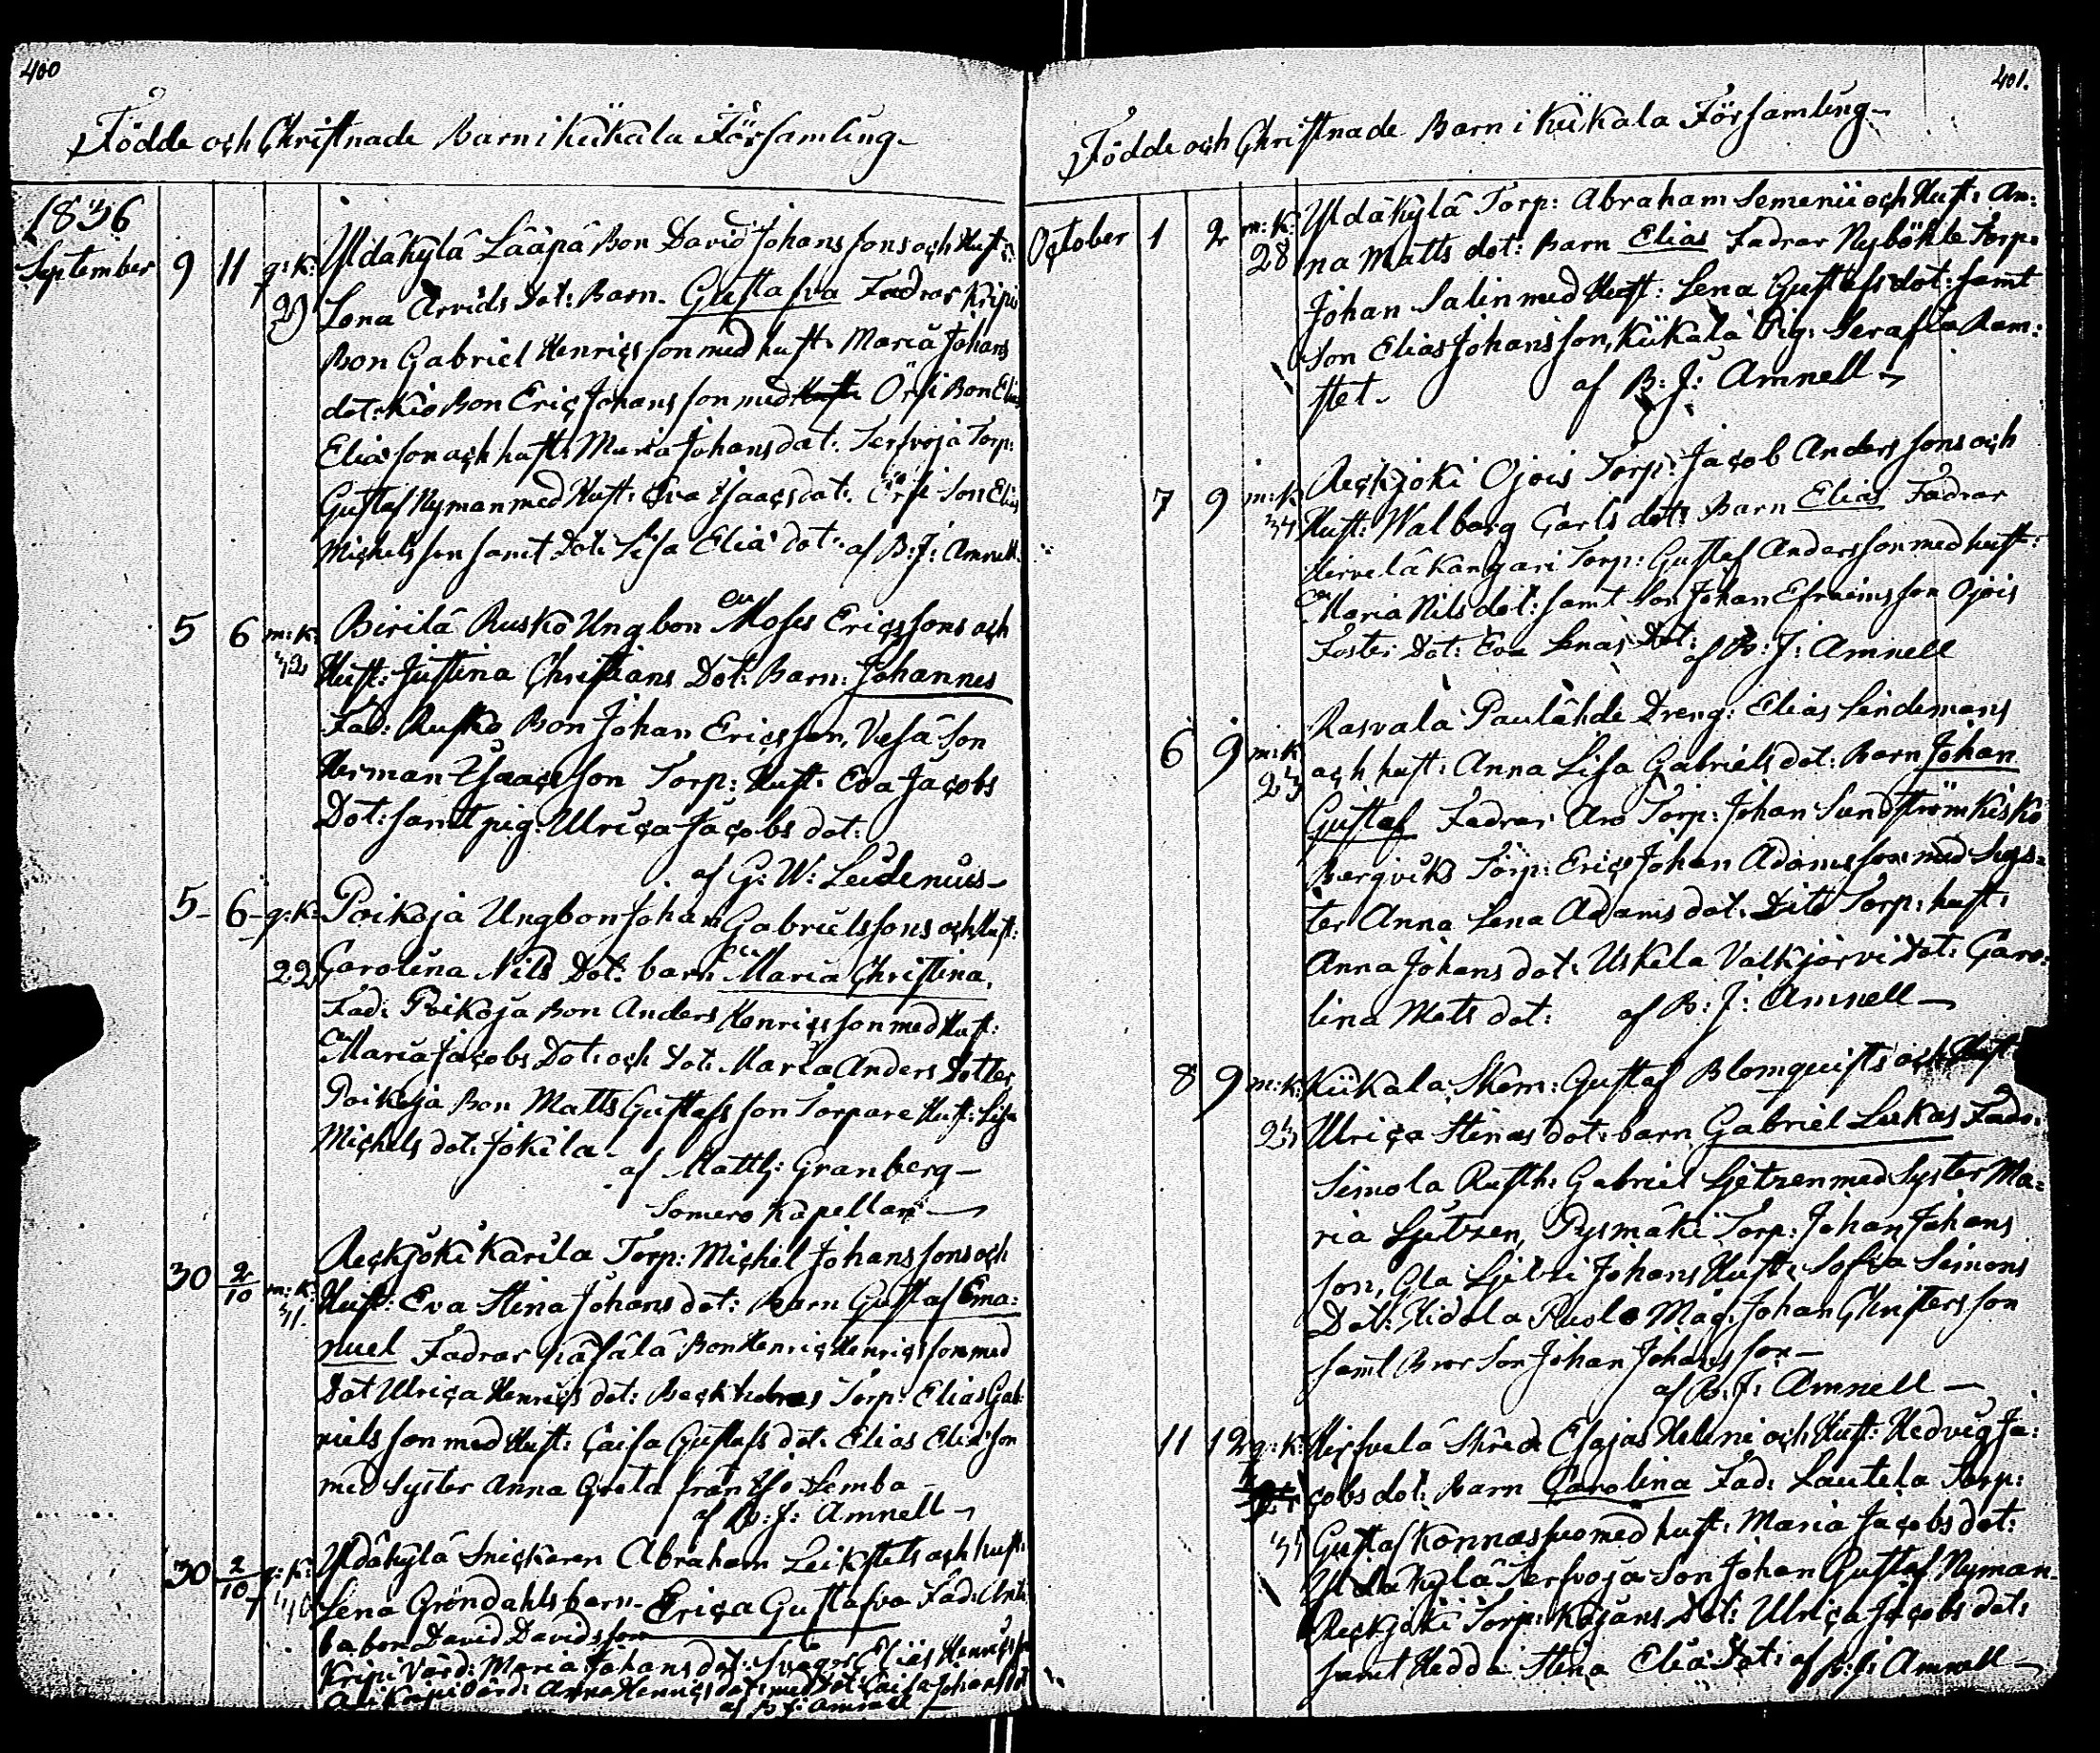 400
Födde och Christnade Barn i Kiikala Församling
1836
September 9 11 q: K: Yldäkylä Lääpä Bon David Johanssons och Hust:
29 Lena Arvids Dot: Barn. Gustafva Fadrar Kripi
Bon Gabriel Henricsson med hust: Maria Johans
dot: Kiö Bon Eric Johansson med Örsi Bon Elias
Eliasson och hust: Maria Johansdot: Tervoja Torp:
Gustaf Nyman med Hust: Eva Isaacsdot: Örsi Son Elias
Michelsson samt Dot: Lisa Elia dot: af B: J: Amnell.
5 6 m: K: Birilä Rusko Ungbon Moses Ericssons och
Hust: Justina Christians Dot: Barn: Johannes
Fad: Rusko Bon Johan Ericsson, Son
Herman Isaacsson Torp: Hust: Eva Jacobs
Dot: samt pig: Ulrica Jacobs dot:
af G: W: Leidenius
5 6 q: K: Poikoja Ungbon Johan Gabrielssons och Hust:
22 Carolina Nils Dot: barn Maria Christina,
Fad: Poikoja Bon Anders Henricsson med Hust:
Maria Jacobs Dot: och Dot: Maria Anders Dotter
Poikoja Bon Matts Gustafsson Torpare Hust: Lisa
Michels dot: Jokila
af Matth: Granberg
Somero Kapellan
30 2/10 m: K: Reckjoki Karila Torp: Michel Johanssons och
31. Hust: Eva Stina Johans dot: Barn Gustaf Ema:
nuel Fadrar Bon Henric Henricsson med
Dot Ulrica Henrics dot: Torp: Elias Gab:
rielsson med Hust: Caisa Gustafs dot: Elias Eliasson
med Syster Anna Greta från
af B: J: Amnell
30 2/10 q: K: Yldäkylä Snickaren Abraham och hust:
40 Lena Gröndahls barn Erica Gustafva Fad:
bon David Davidsson
Kripi Värd: Maria Johans dot: Svåger Elias Henricsson
Anna Henrics dot: med Dot: Caisa Johans dot:
af B: J: Amnell
401.
Födde och Christnade Barn i Kiikala Församling
October 1 2 m: K: Yldäkylä Torp: Abraham Semenii och Hust: An:
28 na Matts dot: Barn Elias Fadrar Nyböhle Torp:
Johan Salin med Hust: Lena Gustafs dot: samt
Son Elias Johansson, Kiikala Pig: Serafia Ram:
stet. af B: J: Amnell
7 9 m: K: Reckjoki Ojois Torp: Jacob Anderssons och
34 Hust: Walborg Carls dot: Barn Elias Fadrar
Hirvelä Kangari Torp: Gustaf Andersson med hust:
Maria Nils dot: samt Son Johan Efraimsson Ojois
Foster Dot: Eva Lenas Dot: af B: J: Amnell
6 9 m: K: Rasvala Paulähde Dreng: Elias Lindemans
23 och hust: Anna Lisa Gabriels dot: Barn Johan
Gustaf Fadrar Aro Torp: Johan Sundström Kisko
Bergviks Torp: Eric Johan Adamsson med Sys:
ter Anna Lena Adams dot: Dito Torp: hust:
Anna Johans dot: Uskela Valkjärvi Dot: Caro:
lina Mats dot: af B: J: Amnell
8 9 m: K: Kiikala Skom: Gustaf Blomquists och Hust:
23 Ulrica Stinas dot: barn Gabriel Lukas Fadr:
Simola Rusth: Gabriel med Syster Ma:
ria Pysmäki Torp: Johan Johans
son, Johans Hust: Sofia Simons
Dot: Hidola Måg: Johan Christersson
samt Bror Son Johan Johansson
af B: J: Amnell
11 12 q: K: Skred: Esajas Heleni och Hust: Hedvig Ja:
cobs dot: Barn Carolina Fad: Lautela Torp:
Gustaf med hust: Maria Jacobs dot:
Yldäkylä Tervoja Son Johan Gustaf Nyman
Reckjoki Torp: Dot: Ulrica Jacobs dot:
samt Hedda Stina Elia Dot: af B: J: Amnell